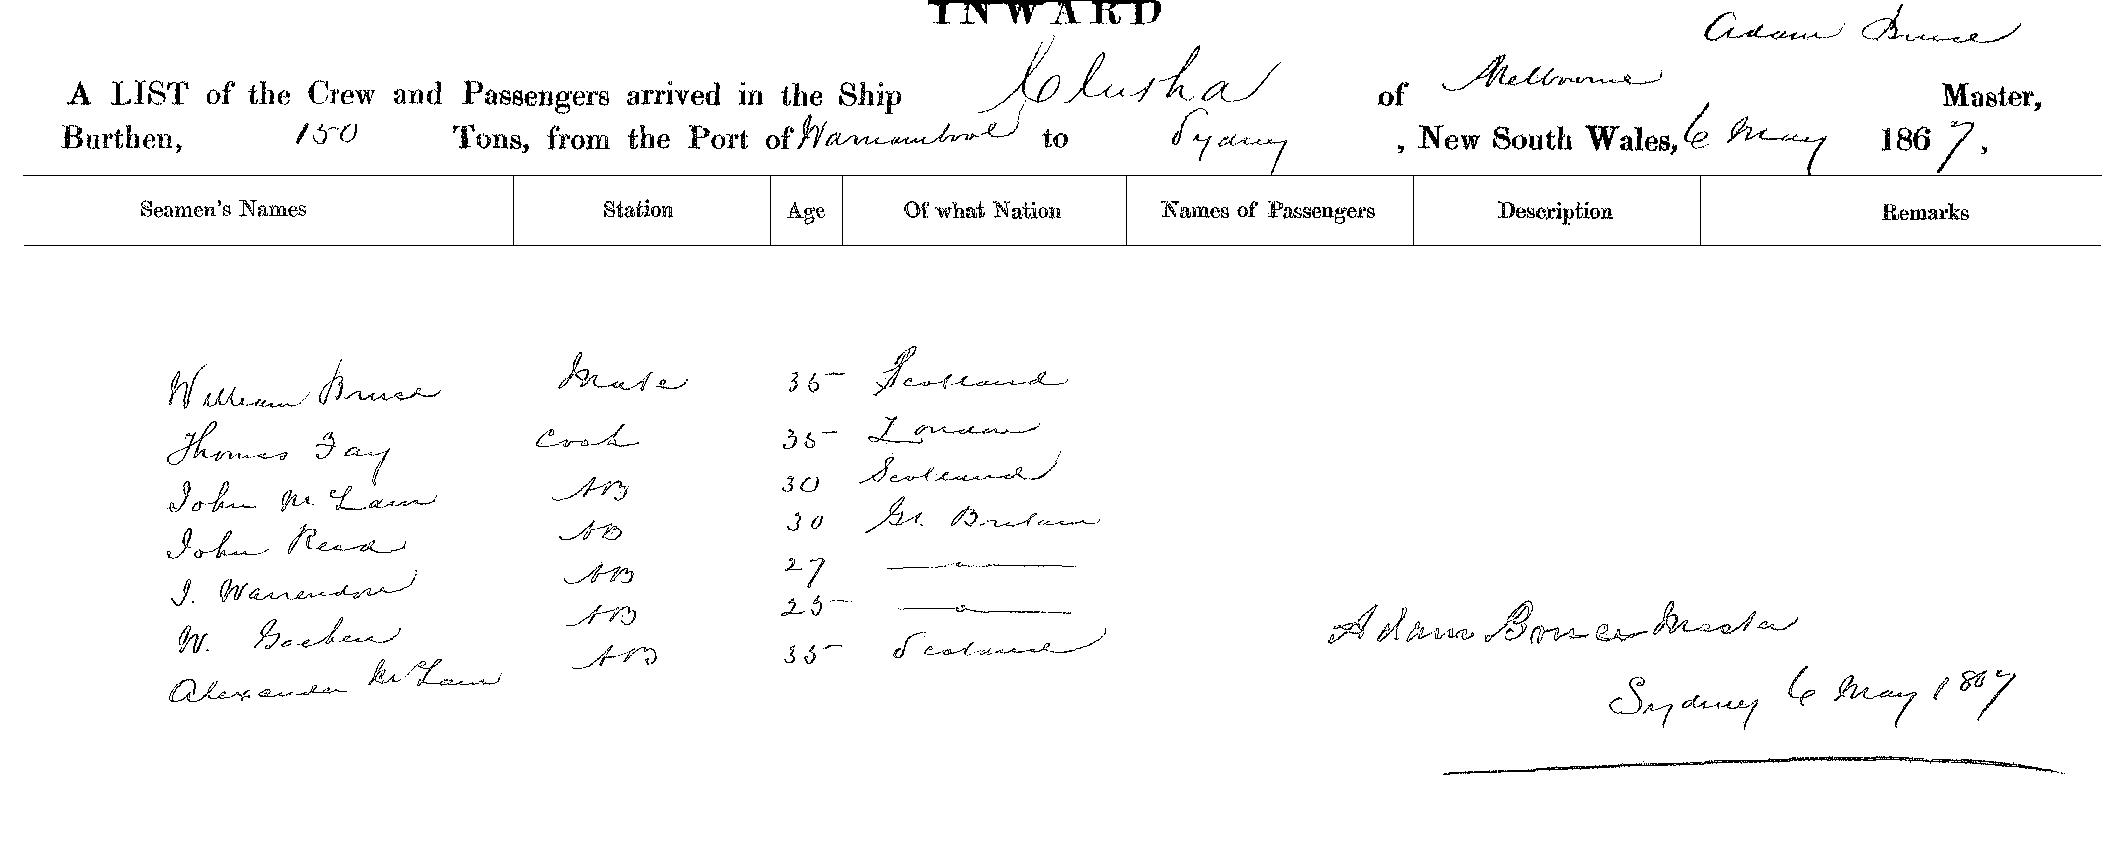 INWARD
A LIST of the Crew and Passengers arrived in the Ship Elusha of Melbourne Adam Bruce Master,
Burthen, 150 Tons, from the Port of Warnambool to Sydney, New South Wales, 6 May 1867,
Seamen's Names Station Age Of what Nation Names of Passengers Description Remarks
William Bruce Mate 35 Scotland
Thomas Fay Cook 35 London
John McLain AB 30 Scotland
John Read AB 30 Gt. Britain
J. AB 27 — " —
W. AB 25 — " —
Alexander McLain AB 35 Scotland
Adam Bruce Master
Sydney 6 May 1867